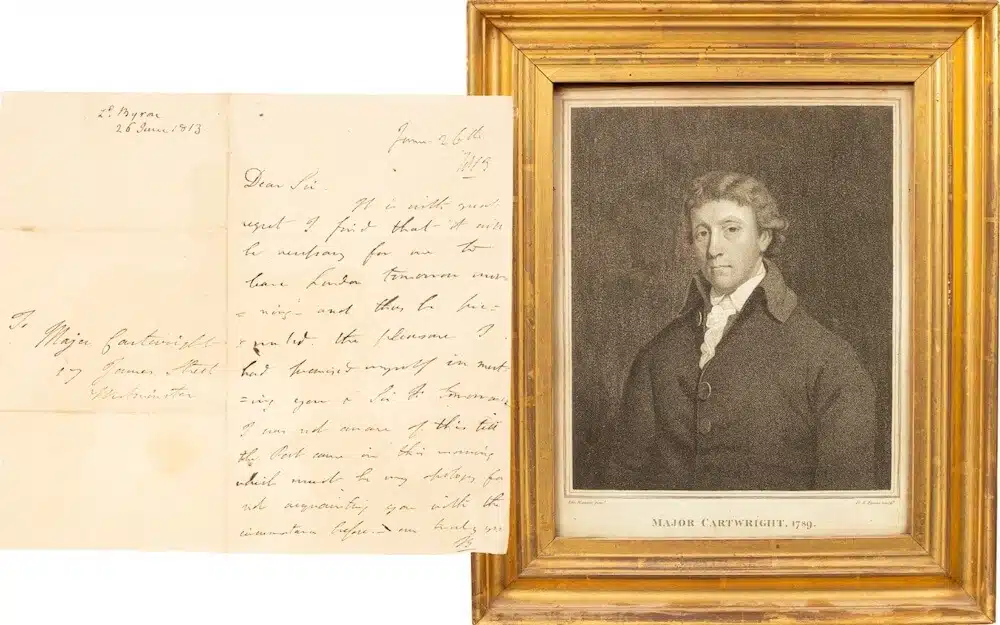 Ld. Byron
26 June 1813
To
Major Cartwright
17 James Street
Westminster
June 26th
1813
Dear Sir
It is with great
regret I find that it will
be necessary for me to
leave London tomorrow morn
= ning - and thus be pre=
= vented the pleasure I
had promised myself in meet
=ing you & Sir
I was not aware of this till
the Post came in this morning
which must be my apology for
not acquainting you with the
circumstance before - ever truly yrs
B
MAJOR CARTWRIGHT, 1789.